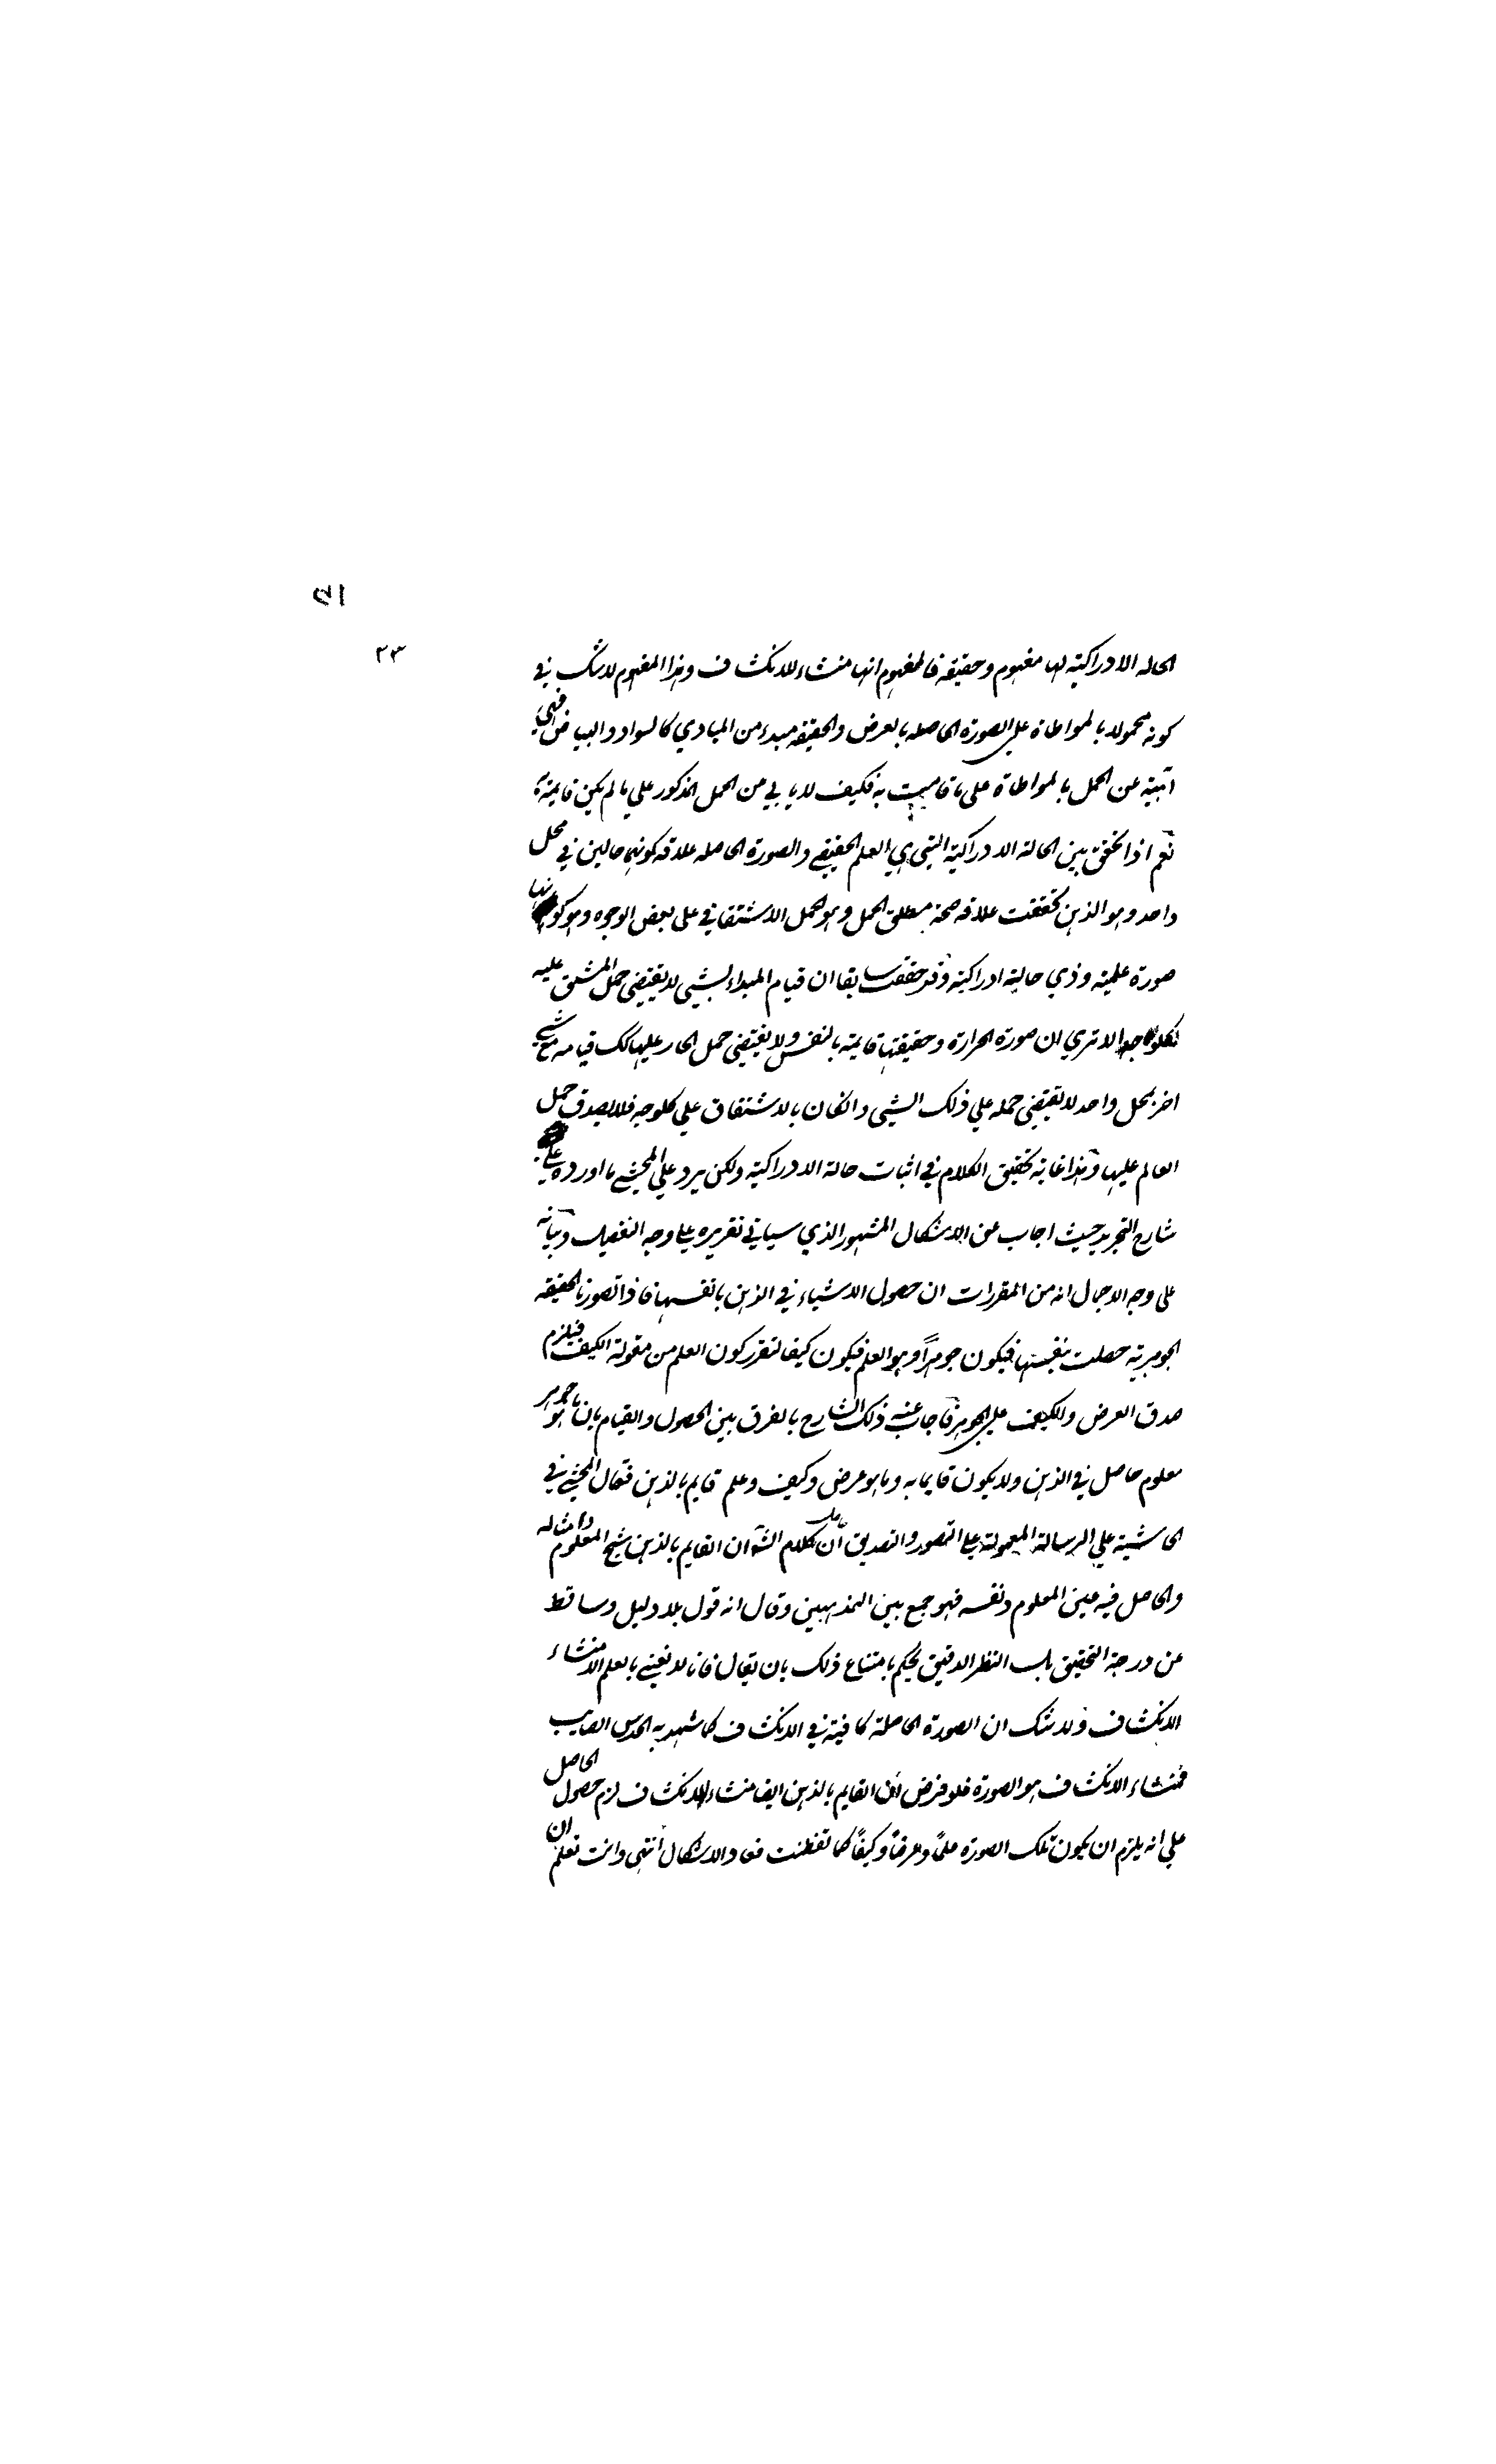 ٢٣
الحالة الادراكية لها مفهوم وحقيقة فالمفهوم انها منشاء للانكشاف وهذا المفهوم لاشك في
كونه محمولا بالمواطاة علي الصورة الحاصله بالعرض والحقيقة مبدء من المبادي كالسواد والبياض فهي
آبية عن الحمل بالمواطاة على ما قامت به فكيف لا يابي من الحمل المذكور علي ما لم يكن قايمة به
نعم اذا تحقق بين الحالة الادراكية التي هي العلم الحقيقي والصورة الحاصله علاقه كونهما حالين في محل
واحد وهو الذهن تحققت علاقه صحة مطلق الحمل وهو الحمل الاشتقاقي على بعض الوجوه وهو كونها
صورة علمية وذي حالية ادراكية وقد حققت سابقا ان قيام المبداء لشيي لا يقتضي حمل المشتق عليه
الا تري ان صورة الحرارة وحقيقتها قايمة بالنفس ولا يقتضي حمل الحار عليها كك قيامه مع شيي
اخر بمحل واحد لا تقتضي حمله علي ذلك الشيي وانكان بالاشتقاق علي كلوجه فلا يصدق حمل
العالم عليها وهذا غاية تحقيق الكلام في اثبات حالة الادراكية ولكن يرد علي المحشي ما اورده علي
شارح التجريد حيث اجاب عن الاشكال المشهور الذي سياتي تقريره علي وجه التفصيل وبيانه
على وجه الاجمال انه من المقررات ان حصول الاشياء في الذهن بانفسها فاذا تصورنا الحقيقة
الجوهرية حصلت بنفسها فيكون جوهراً وهو العلم فيكون كيفا لتقرر كون العلم من مقولة الكيف فيلزم
صدق العرض والكيف علي الجوهر فاجاب عنه ذلك الشارح بالفرق بين الحصول والقيام بان ما هو جوهر
معلوم حاصل في الذهن ولا يكون قايما به وما هو عرض وكيف وعلم قايم بالذهن فقال المحشي في
الحاشية علي الرسالة المعمولة علي التصور والتصديق ان حاصل كلام الش ان القايم بالذهن شبح المعلوم ومثاله
والحاصل فيه عين المعلوم ونفسه فهو جمع بين المذهبين وقال انه قول بلا دليل وساقط
عن درجة التحقيق بل النظر الدقيق يحكم بامتناع ذلك بان يقال فانا لا نعني بالعلم الا منشاء
الانكشاف ولا شك ان الصورة الحاصلة كافية في الانكشاف كما شهد به الحدس الصايب
فمنشاء الانكشاف هو الصورة فلو فرض ان القايم بالذهن ايضا منشاء للانكشاف لزم حصول الحاصل
علي انه يلزم ان يكون تلك الصورة علماً وعرضاً وكيفاً كما تفطنت فعاد الاشكال انتهى وانت تعلم ان